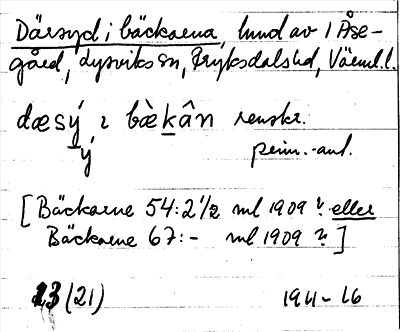 Därsyd i bäckarna, lund av 1 Åse-
gård, Lysviks sn, Fryksdals hd, Värml. l.
dæsý ɩ bæ̀kân renskr.
ý penn.-ant.
[Bäckarne 54:2 1/2 ml 1909 ? eller
Bäckarne 67:- ml 1909 ?]
23 (21) 1911-16